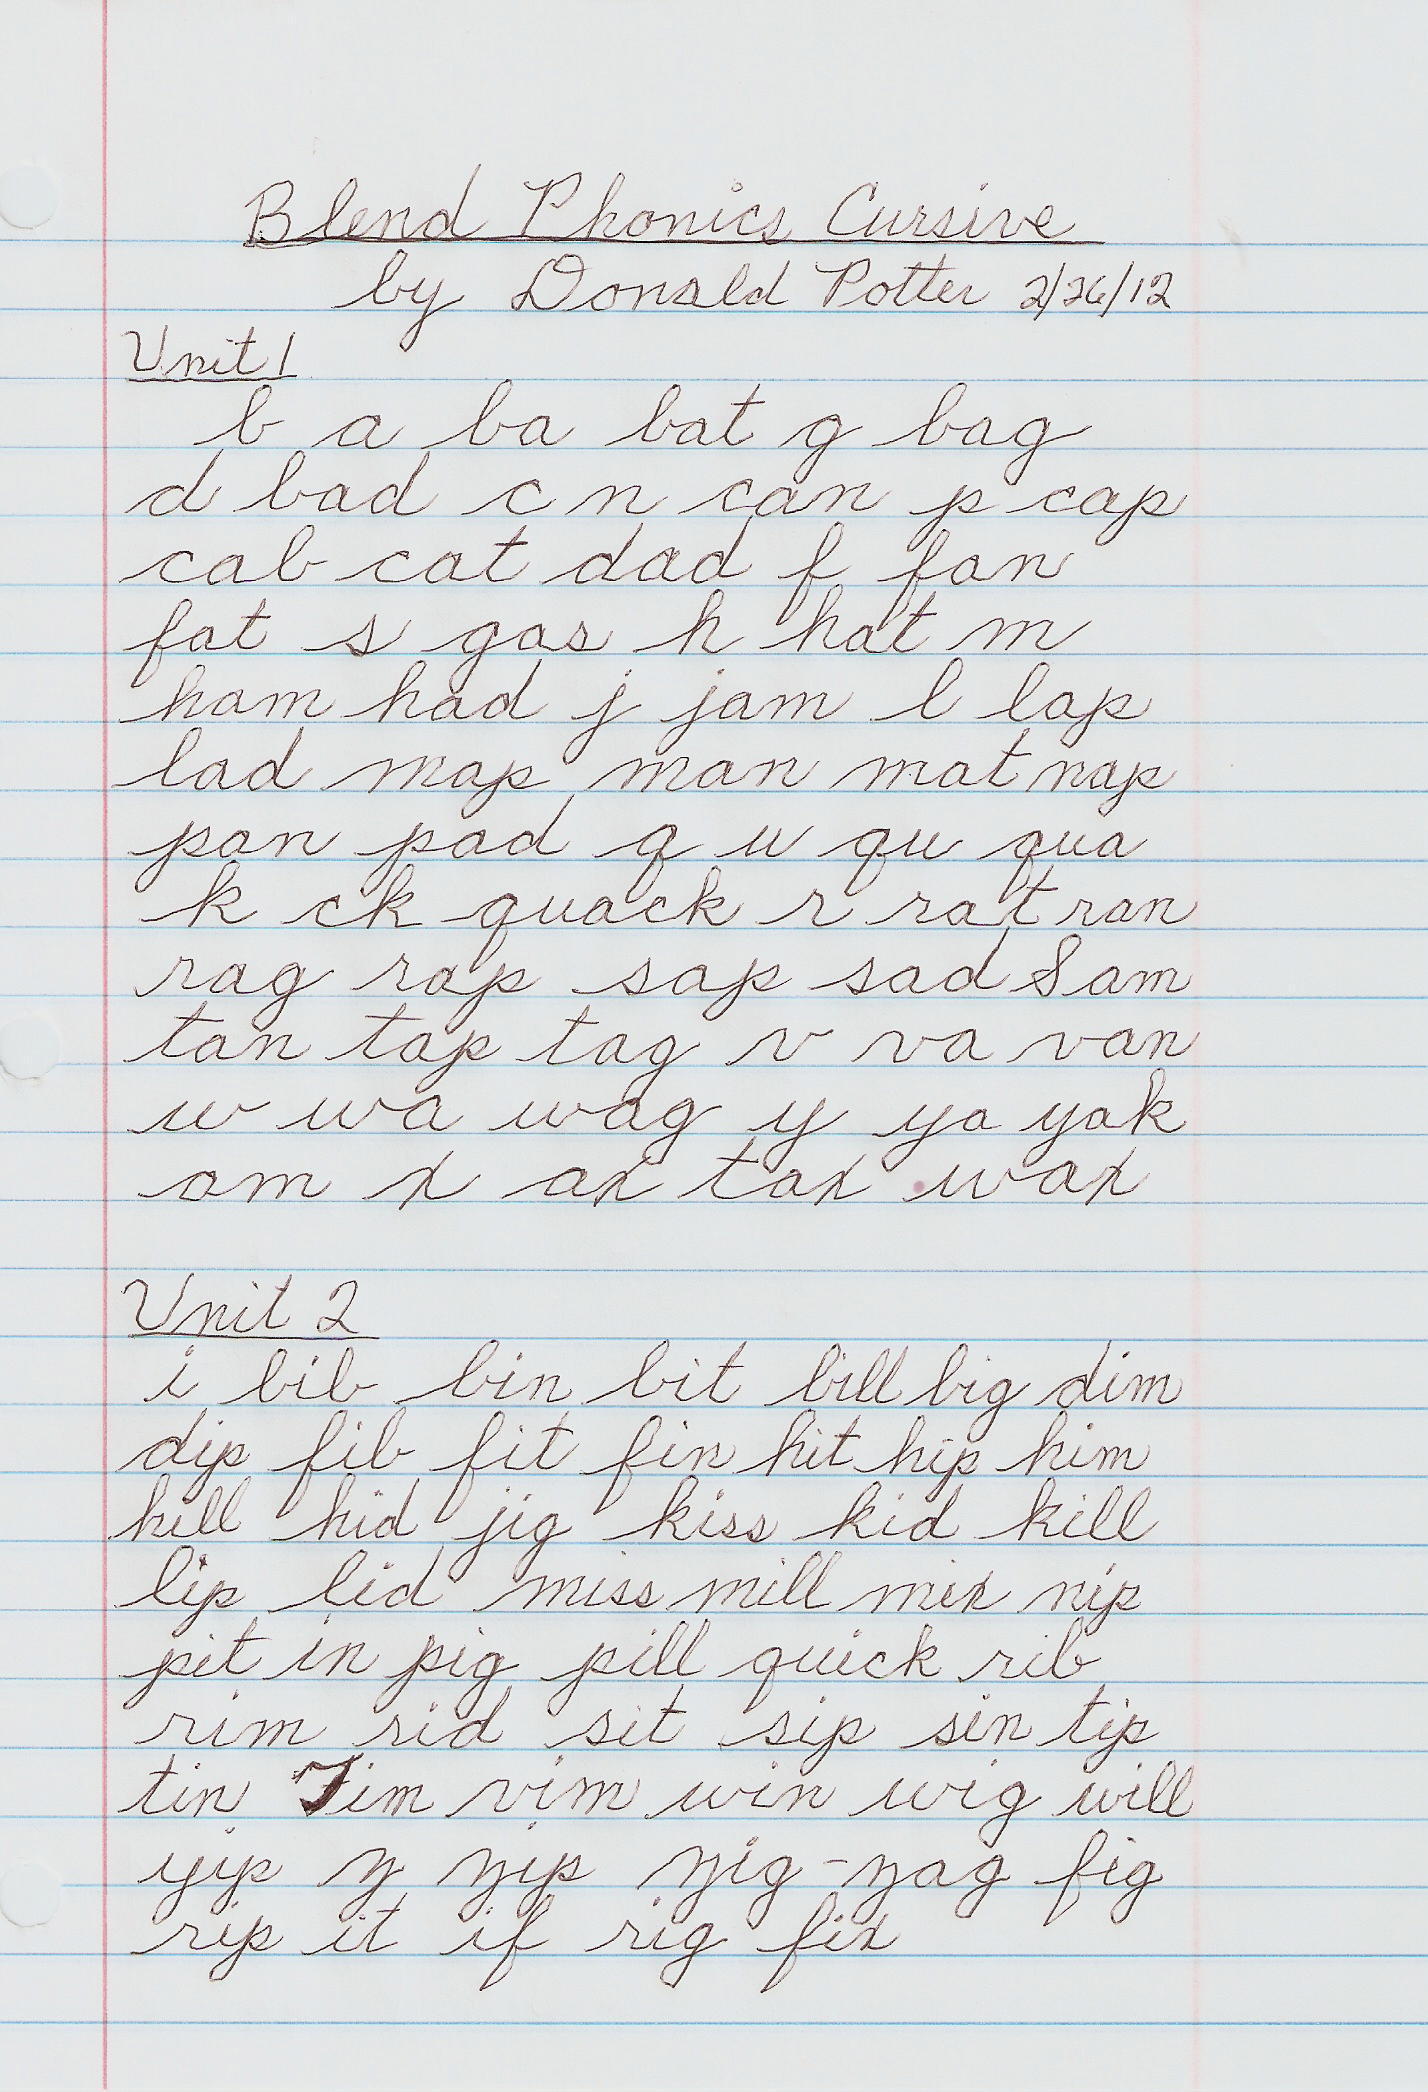 Blend Phonics Cursive
by Donald Potter 2/26/12
Unit 1
b a ba bat g bag
d bad c n can p cap
cab cat dad f fan
fat s gas h hat m
ham had j jam l lap
lad map man mat nap
pan pad q u qu qua
k ck quack r rat ran
rag rap sap sad Sam
tan tap tag v va van
w wa wag y ya yak
am x ax tax wax
Unit 2
i bib bin bit bill big dim
dip fib fit fin hit hip him
hill hid jig kiss kid kill
lip lid miss mill mix nip
pit in pig pill quick rib
rim rid sit sip sin tip
tin Tim vim win wig will
yip z zip zig-zag fig
rip it if rig fix